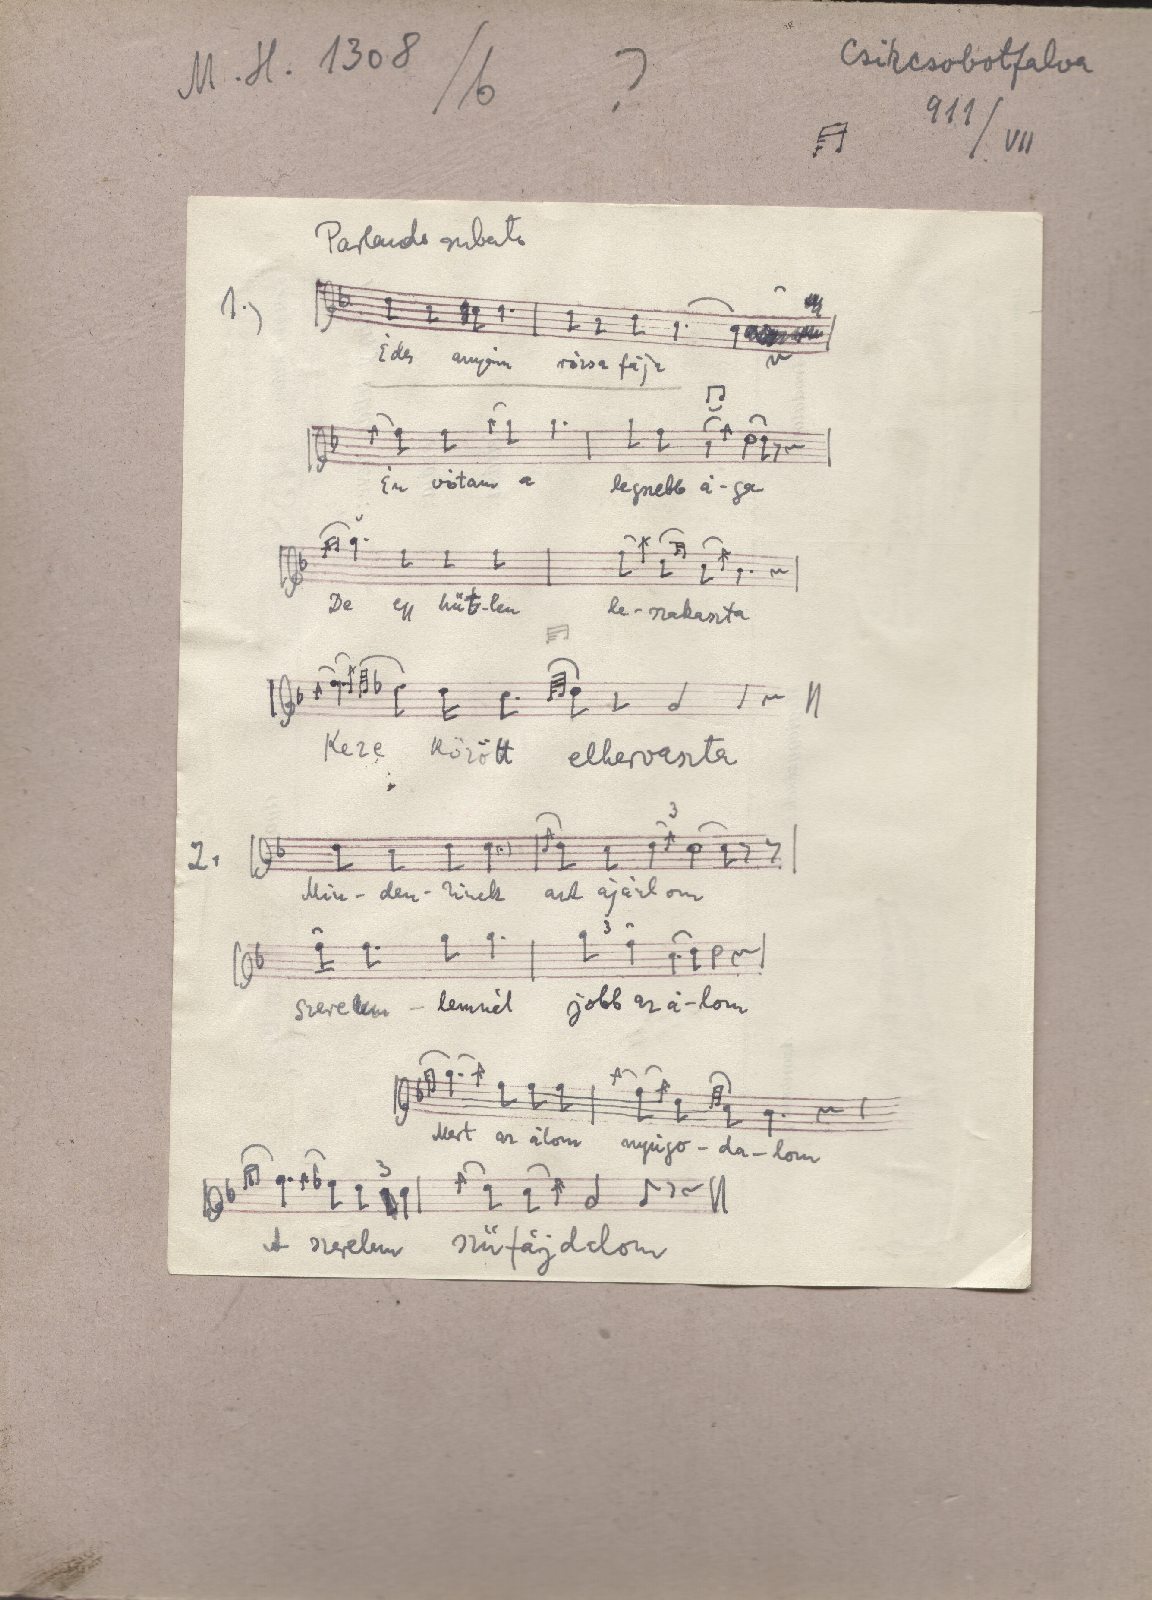 M. H. 1308/b ? Csikcsobotfalva
911/VII
Parlando rubato
1.)
Édes anyám rózsa fája
Én vótam a legszebb á-ga
De egy hüt-len le-szakaszta
Keze között elhervaszta
2.
Min-den-kinek azt ajánlom
3
szerelem-lemnél jobb az á-lom
3
Mert az álom nyúgo-da-lom
3
A szerelem szüfájdalom